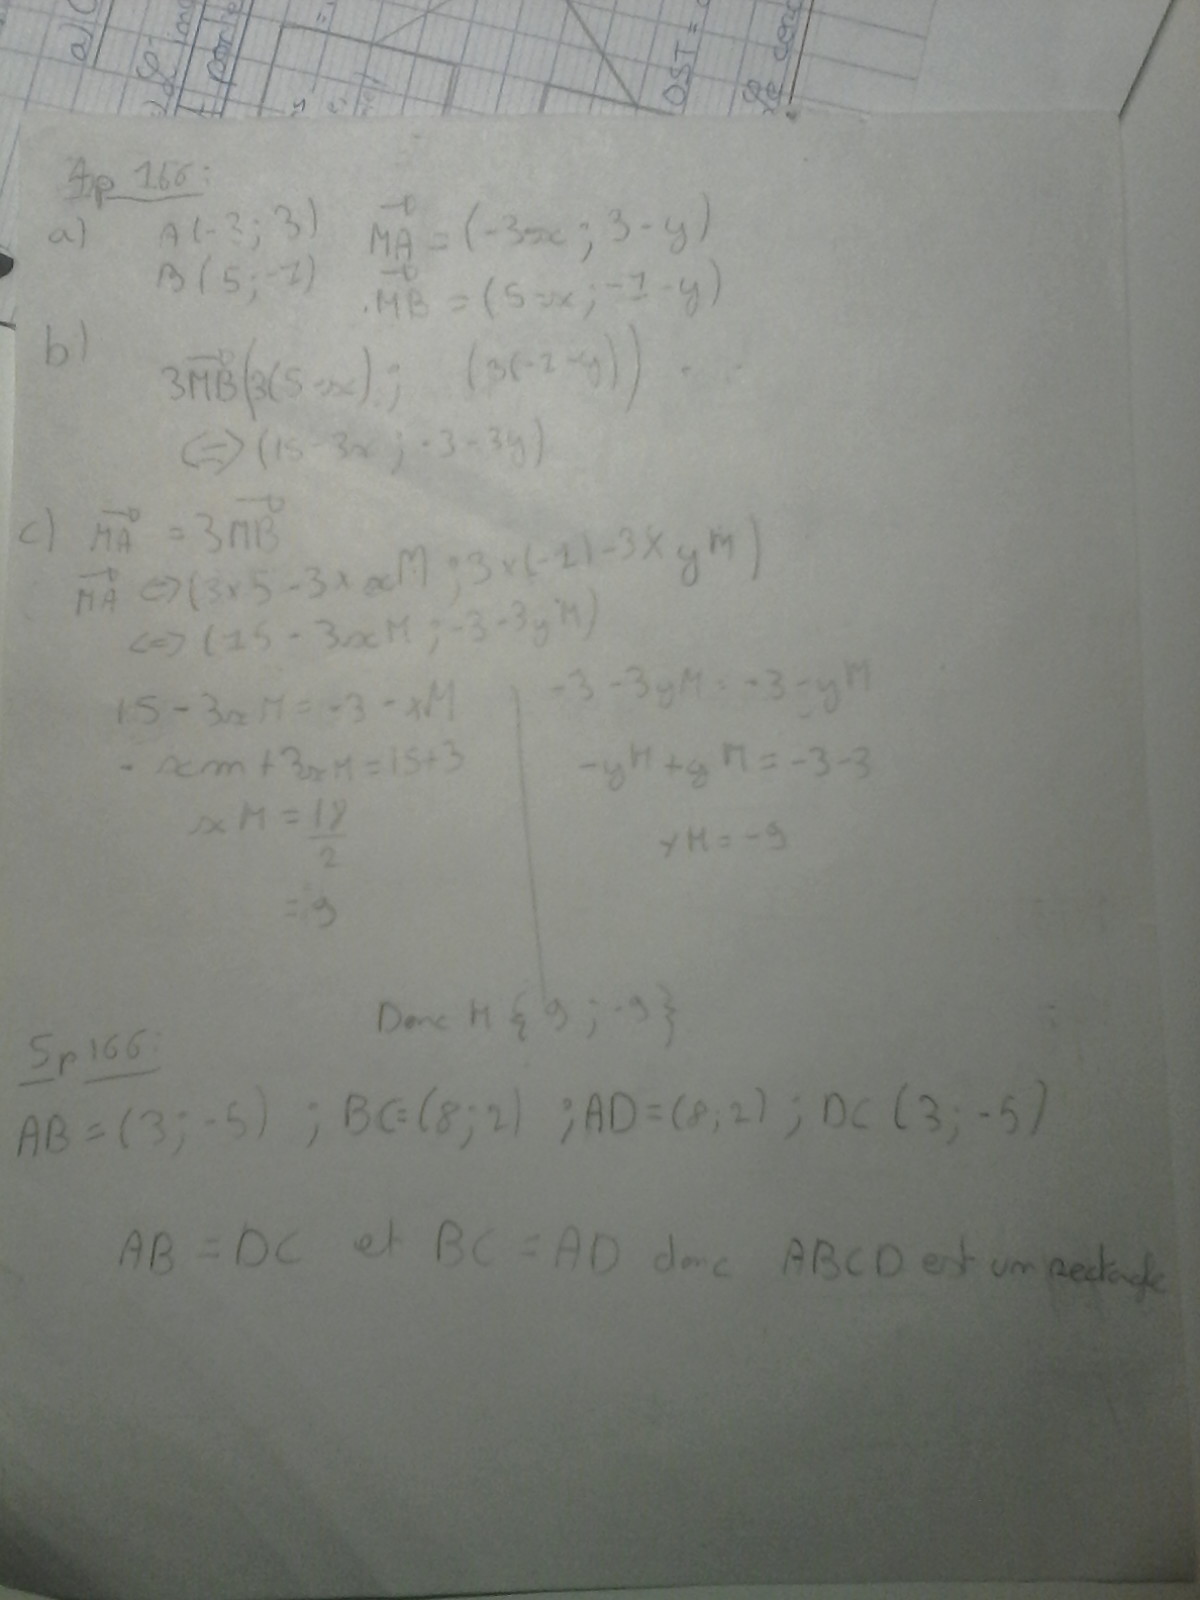 a) (
DST =
4p 166:
a) A(-3; 3) MA = (-3-x; 3-y)
B(5; -1) MB = (5-x; -1-y)
b)
3MB(3(5-x); (3(-1-y))
<=> (15-3x; -3-3y)
c) MA = 3MB
MA <=> (3x5-3x xM; 3x(-1)-3x yM)
<=> (15-3xM; -3-3yM)
15-3xM = -3-xM
- xm+3xM = 15+3
xM = 18/2
= 9
-3-3yM = -3-yM
-yM+yM = -3-3
yM = -9
Donc M {9; -9}
5p166:
AB = (3; -5) ; BC = (8; 2) ; AD = (8; 2) ; DC (3; -5)
AB = DC et BC = AD donc ABCD est un rectangle